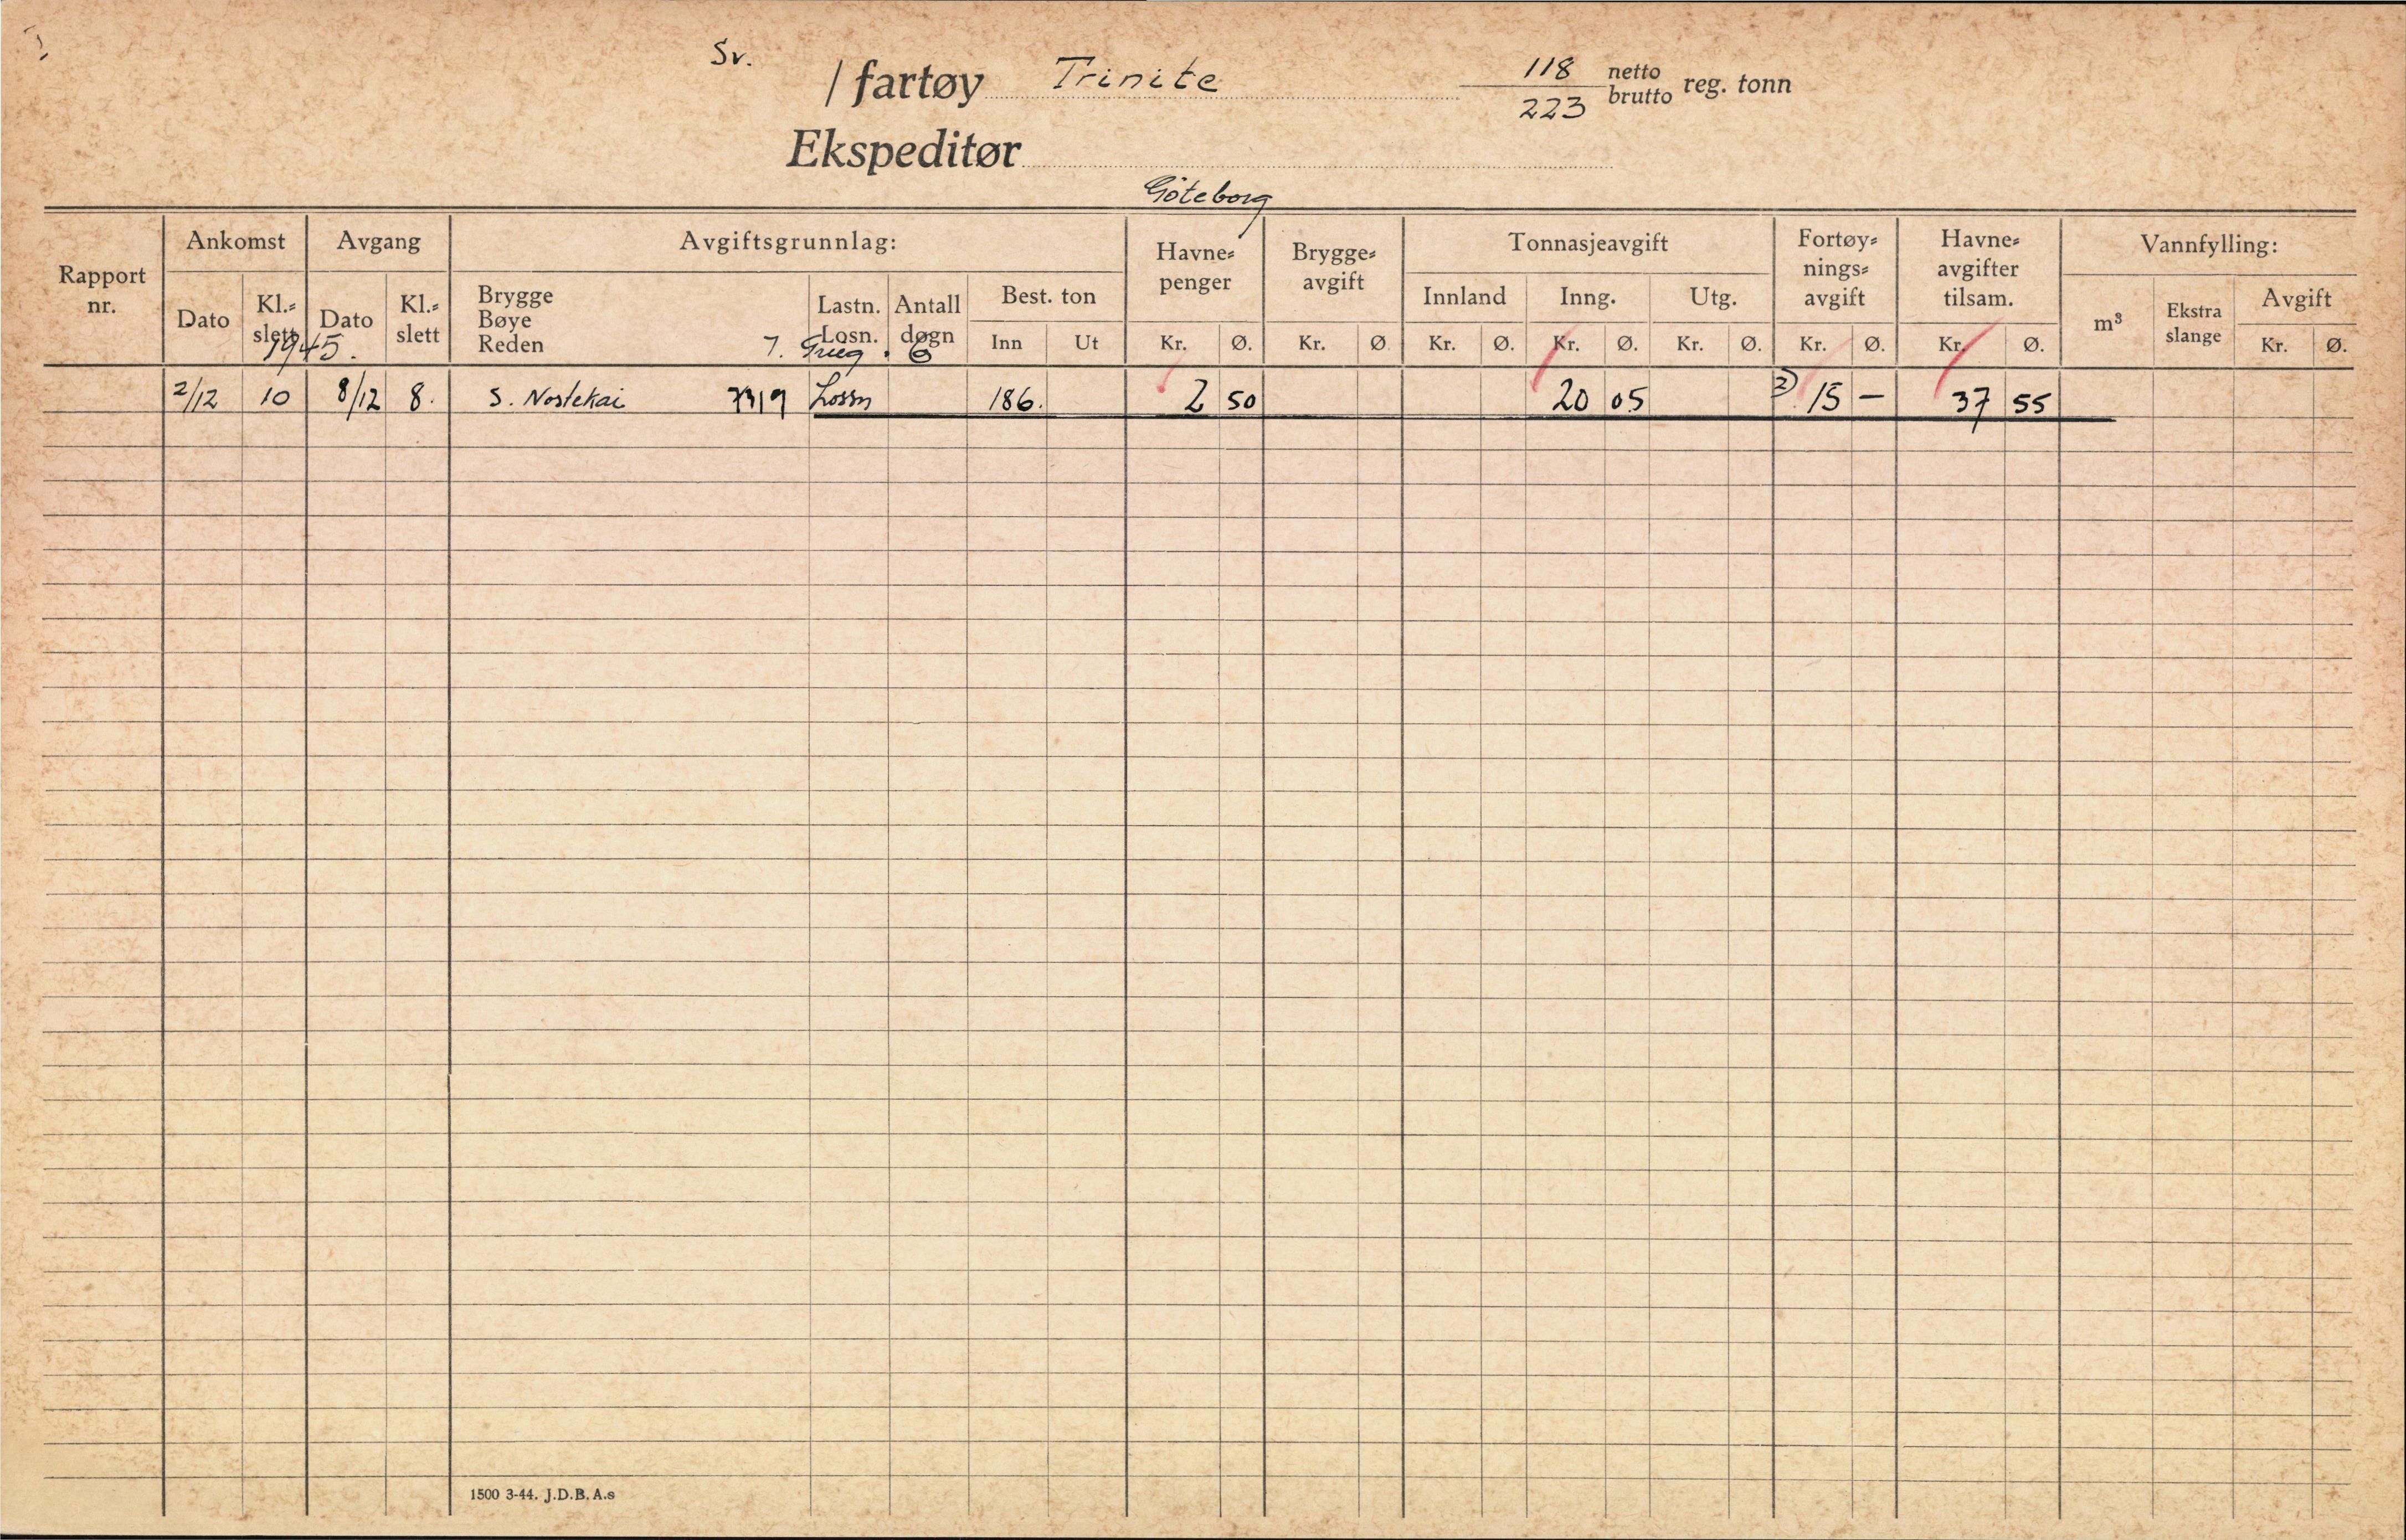 Sv. / fartøy Trinite 118 netto
223 brutto reg. tonn
Ekspeditør
Göteborg
Rapport nr.
Ankomst
Avgang
Avgiftsgrunnlag:
Havne=
penger
Brygge=
avgift
Tonnasjeavgift
Fortøy=
nings=
avgift
Havne=
avgifter
tilsam.
Vannfylling:
Dato Kl.= slett Dato Kl.= slett
Brygge
Bøye
Reden
Lastn. Losn.
Antall døgn
Best. ton
Inn Ut
Innland Inng. Utg.
m³
Ekstra slange
Avgift
Kr. Ø. Kr. Ø. Kr. Ø. Kr. Ø. Kr. Ø. Kr. Ø. Kr. Ø. Kr. Ø.
1945. Grieg. 6
2/12 10 8/12 8. S. Nostekai Lossn 186. 2 50 20 05 2) 15 – 37 55
1500 3-44. J.D.B. A.s